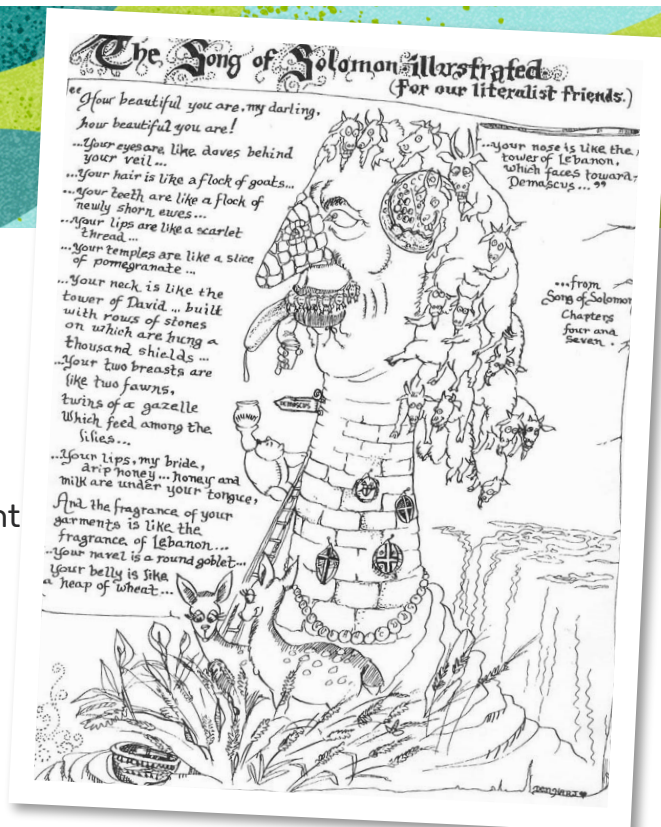 The Song of Solomon illustrated
(for our literalist friends.)
"How beautiful you are, my darling,
how beautiful you are!
...Your eyes are like doves behind
your veil...
...Your hair is like a flock of goats...
...Your teeth are like a flock of
newly shorn ewes...
...Your lips are like a scarlet
thread...
...Your temples are like a slice
of pomegranate...
...Your neck is like the
tower of David... built
with rows of stones
on which are hung a
thousand shields...
...Your two breasts are
like two fawns,
twins of a gazelle
Which feed among the
lilies...
...Your lips, my bride,
drip honey... honey and
milk are under your tongue,
And the fragrance of your
garments is like the
fragrance of Lebanon...
...Your navel is a round goblet...
Your belly is like
a heap of wheat...
...your nose is like the
tower of Lebanon,
which faces toward
Demascus..."
...from
Song of Solomon
Chapters
four and
seven.
HUNNY
nt